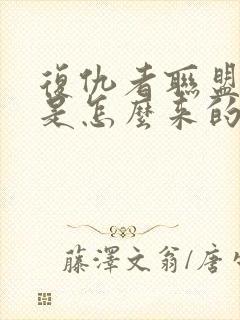 復仇者聯盟
是怎麼來的
藤澤文翁/唐